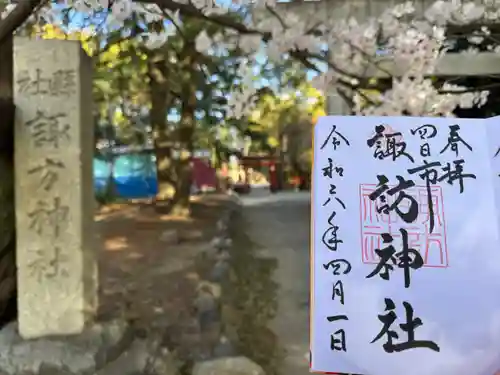 縣社
諏方神社
春拝
四日市
諏訪神社
令和六年四月一日